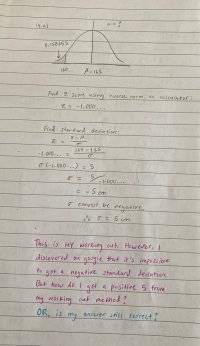 σ = ?
0.158655
160
μ = 165
Find z score using inverse norm on calculator:
z = -1.000...
Find standard deviation:
z = x - μ / σ
-1.000... = 160 - 165 / σ
σ(-1.000...) = 5
σ = 5/-1.000...
σ = -5 cm
σ cannot be negative,
∴ σ = 5 cm
This is my working out. However, I
discovered on google that it's impossible
to get a negative standard deviation
But how do I get a positive 5 from
my working out method?
OR, is my answer still correct?